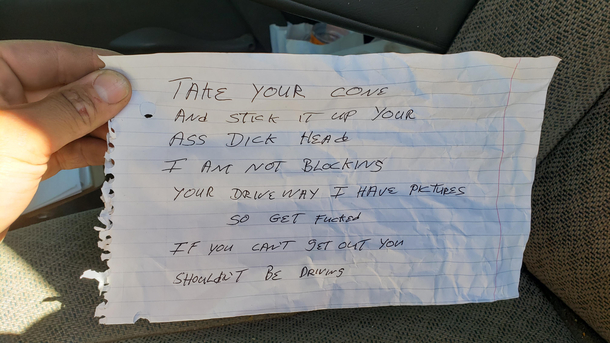 TAKE YOUR CONE
AND STICK IT UP YOUR
ASS DICK HEAD
I AM NOT BLOCKING
YOUR DRIVEWAY I HAVE PICTURES
SO GET FUCKED
IF YOU CAN'T GET OUT YOU
SHOULDN'T BE DRIVING